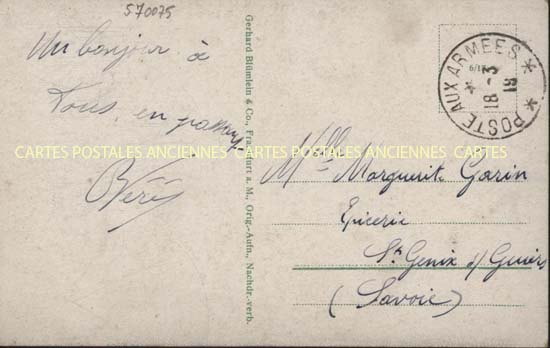 570075
Un bonjour à
tous, en passant
Gerhard Blümlein & Co., Frankfurt a. M., Orig.-Aufn., Nachdr.-verb.
POSTE AUX ARMEES
18 - 3
19
CARTES POSTALES ANCIENNES CARTES POSTALES ANCIENNES CARTES
Melle Marguerite Garin
Epicerie
St Genix s/ Guiers
(Savoie)